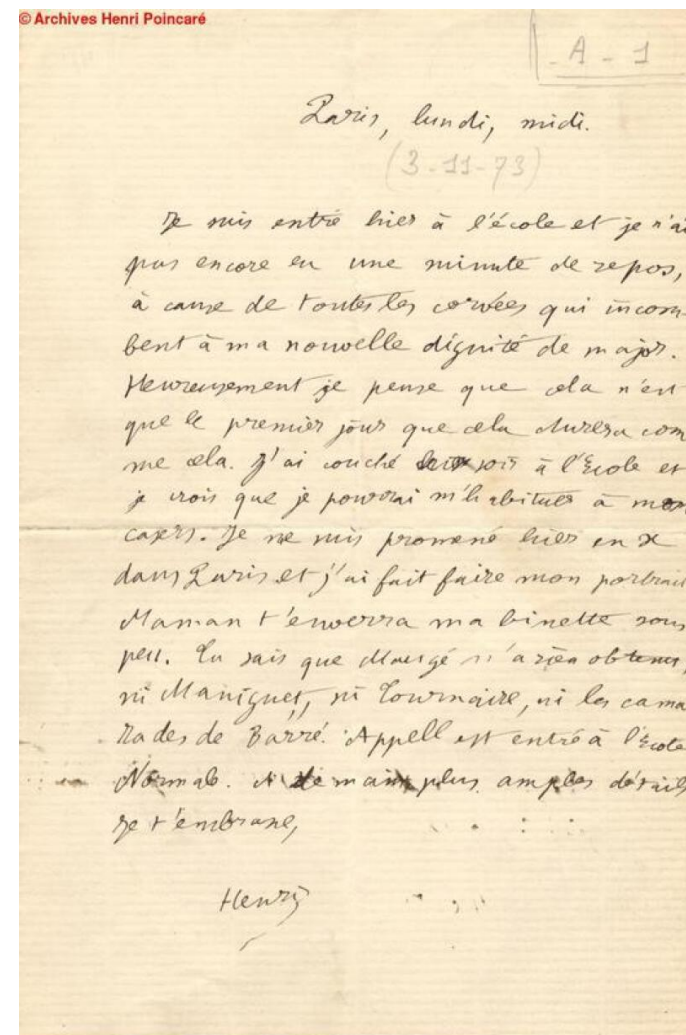 © Archives Henri Poincaré
A - 1
Paris, lundi, midi.
(3-11-73)
Je suis entré hier à l'école et je n'ai
pas encore eu une minute de repos,
à cause de toutes les corvées qui incom-
bent à ma nouvelle dignité de major.
Heureusement je pense que cela n'est
que le premier jour que cela durera com
me cela. J'ai couché soir à l'Ecole et
je crois que je pourrai m'habituer à mon
casern. Je me suis promené hier en x
dans Paris et j'ai fait faire mon portrait
Maman t'enverra ma binette sous
peu. Tu sais que Maugé n'a rien obtenu,
ni Maniguet, ni Tournaire, ni les cama
rades de Barré. Appell est entré à l'Ecole
Normale. A demain plus amples détails
Je t'embrasse,
Henri